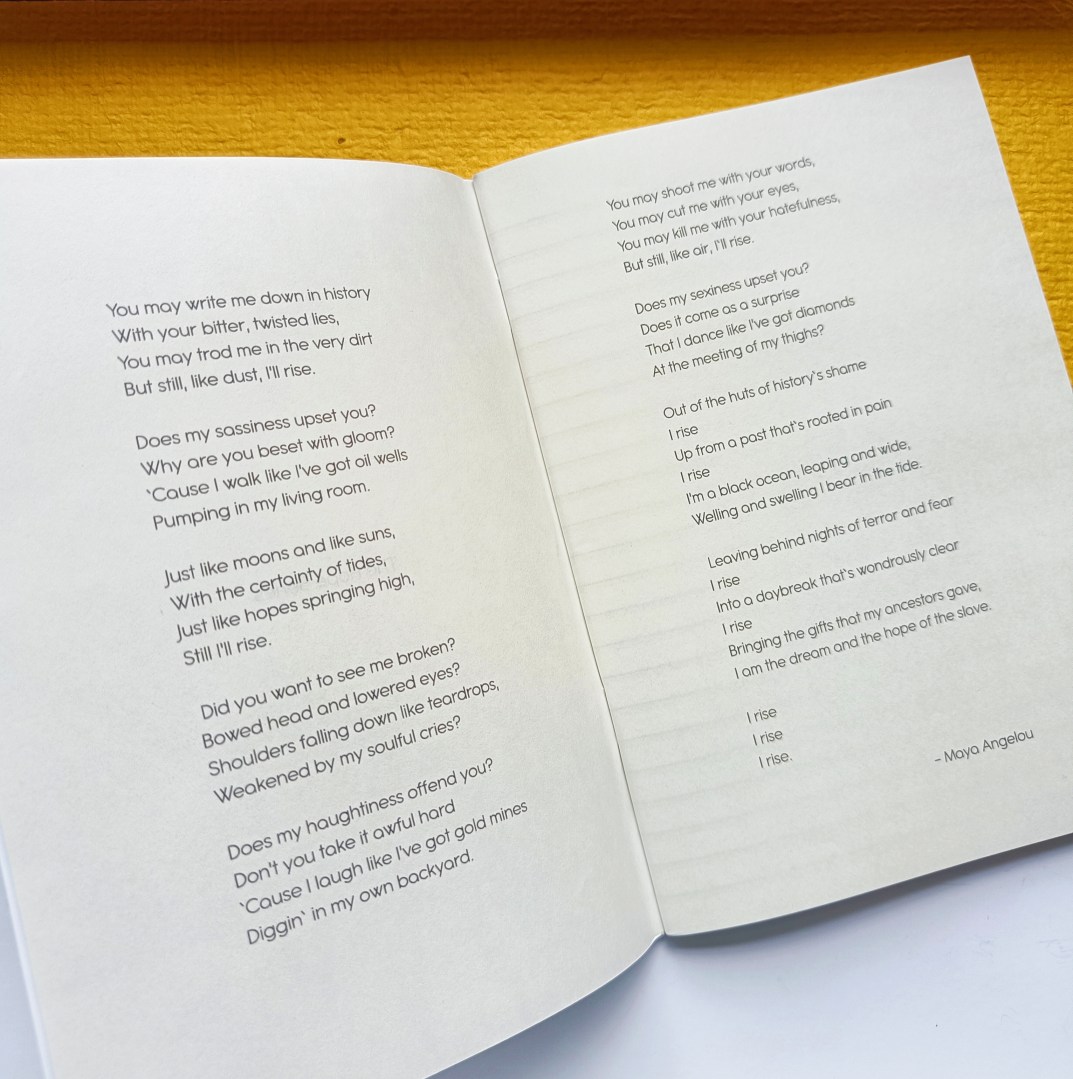 You may write me down in history
With your bitter, twisted lies,
You may trod me in the very dirt
But still, like dust, I'll rise.
Does my sassiness upset you?
Why are you beset with gloom?
‘Cause I walk like I've got oil wells
Pumping in my living room.
Just like moons and like suns,
With the certainty of tides,
Just like hopes springing high,
Still I'll rise.
Did you want to see me broken?
Bowed head and lowered eyes?
Shoulders falling down like teardrops,
Weakened by my soulful cries?
Does my haughtiness offend you?
Don't you take it awful hard
‘Cause I laugh like I've got gold mines
Diggin‘ in my own backyard.
You may shoot me with your words,
You may cut me with your eyes,
You may kill me with your hatefulness,
But still, like air, I'll rise.
Does my sexiness upset you?
Does it come as a surprise
That I dance like I've got diamonds
At the meeting of my thighs?
Out of the huts of history's shame
I rise
Up from a past that's rooted in pain
I rise
I'm a black ocean, leaping and wide,
Welling and swelling I bear in the tide.
Leaving behind nights of terror and fear
I rise
Into a daybreak that's wondrously clear
I rise
Bringing the gifts that my ancestors gave,
I am the dream and the hope of the slave.
I rise
I rise
I rise.
– Maya Angelou